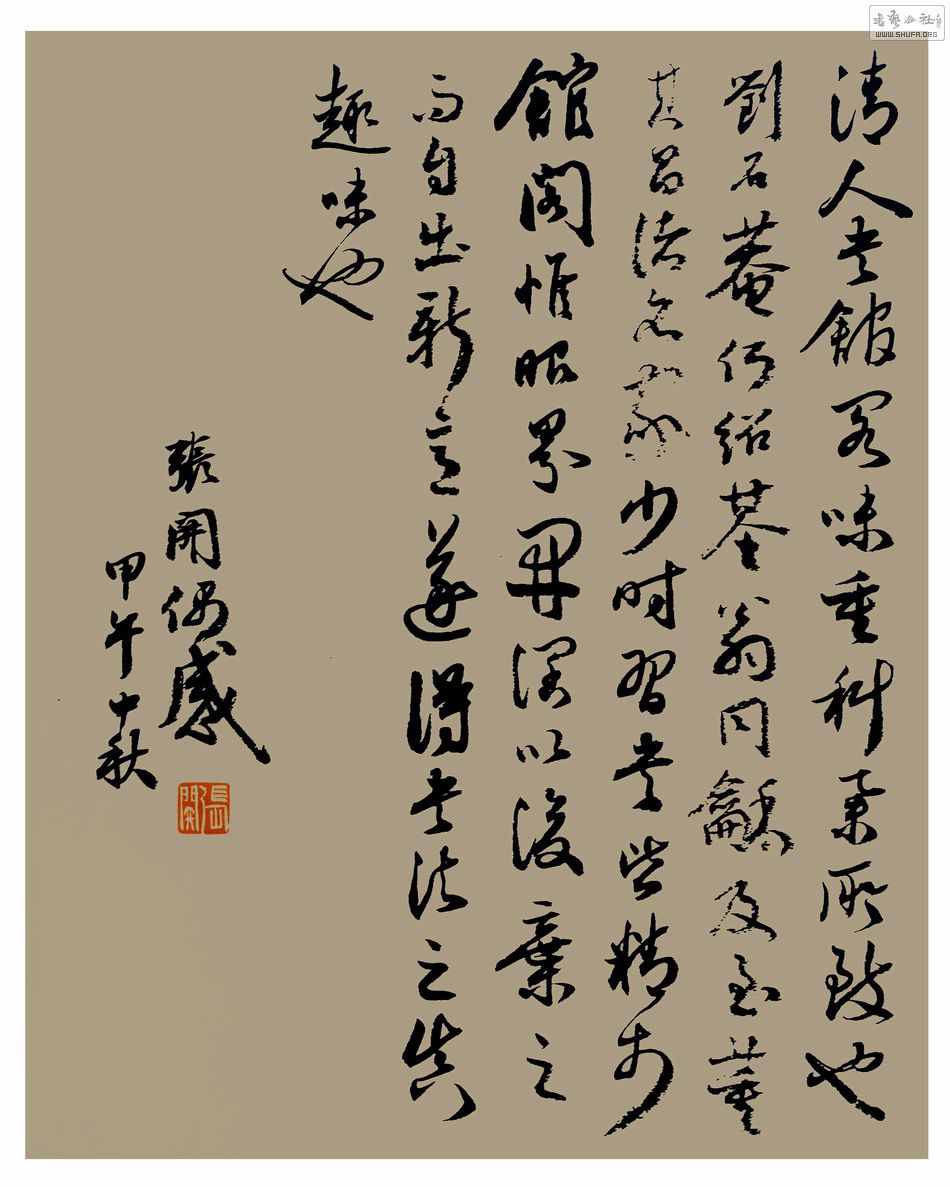 清人书館閣味重科所致也
劉石菴何紹基翁同龢及至董
其昌諸名家少時習书皆精於
館閣惟眼界開濶以後棄之
而自出新意遂得书法之真
趣味也
張開偶感
甲午中秋
張開
书艺公社
WWW.SHUFA.ORG